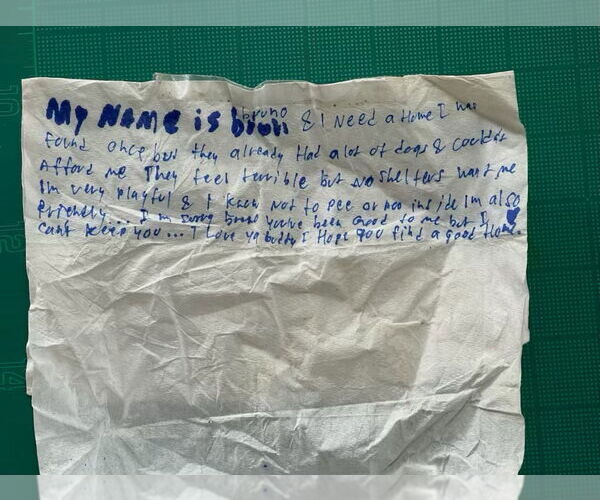 My NAME is bruno & I Need a Home I was
Found once but they already Had a lot of dogs & couldn't
Afford me They feel terrible but no shelters want me
Im very playful & I know not to pee or poo inside Im also
Friendly... I'm sorry bruno you've been good to me but I
cant keep you... I Love ya buddy I Hope you find a good Home.